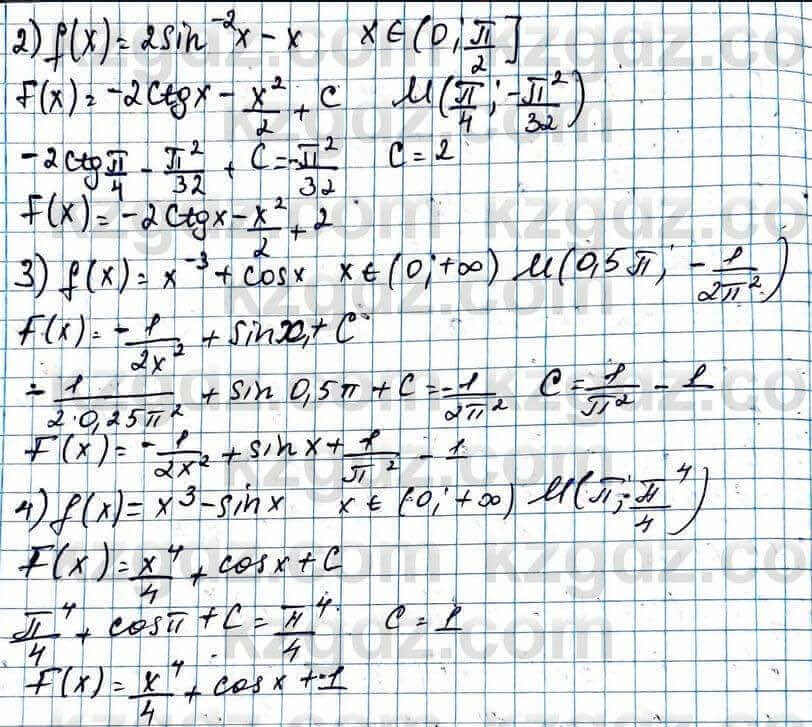 2) f(x) = 2sin⁻²x − x   x ∈ (0; π/2]
F(x) = −2ctgx − x²/2 + C   M(π/4; −π²/32)
−2ctg π/4 − π²/32 + C = −π²/32   C = 2
F(x) = −2ctgx − x²/2 + 2
3) f(x) = x⁻³ + cosx   x ∈ (0; +∞)   M(0,5π; −1/2π²)
F(x) = −1/2x² + sinx + C
−1/2·0,25π² + sin 0,5π + C = −1/2π²   C = 1/π² − 1
F(x) = −1/2x² + sinx + 1/π² − 1
4) f(x) = x³ − sinx   x ∈ (0; +∞)   M(π; π⁴/4)
F(x) = x⁴/4 + cosx + C
π⁴/4 + cosπ + C = π⁴/4   C = 1
F(x) = x⁴/4 + cosx + 1
kzgdz.com